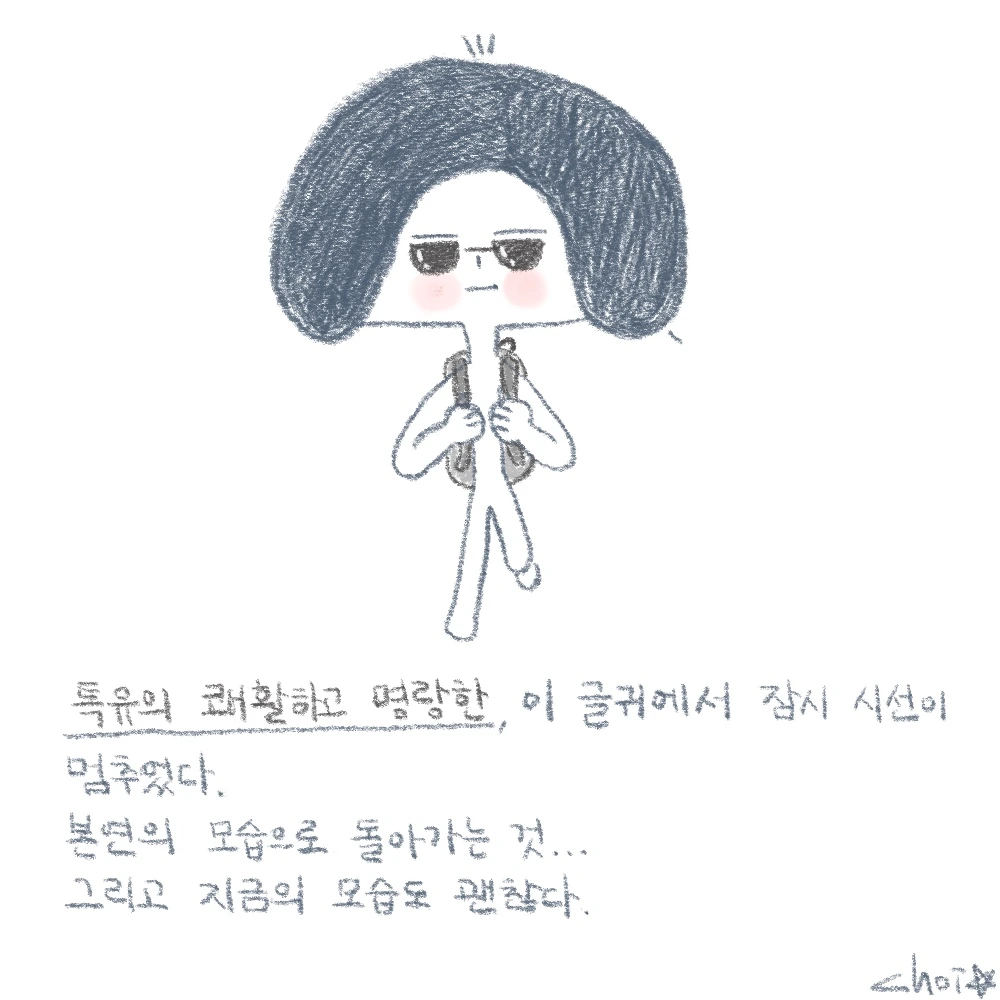 특유의 쾌활하고 명랑한, 이 글귀에서 잠시 시선이
멈추었다.
본연의 모습으로 돌아가는 것...
그리고 지금의 모습도 괜찮다.
choi☆